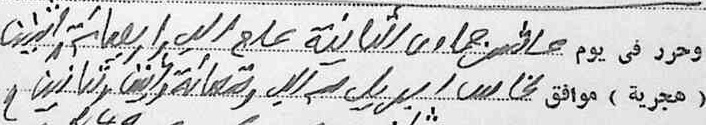 وحرر فى يوم عاشر جمادى الثانية عام الف واربعمائة اثنين
( هجرية ) موافق خامس ابريل سنة الف وتسعمائة واثنين وثمانين